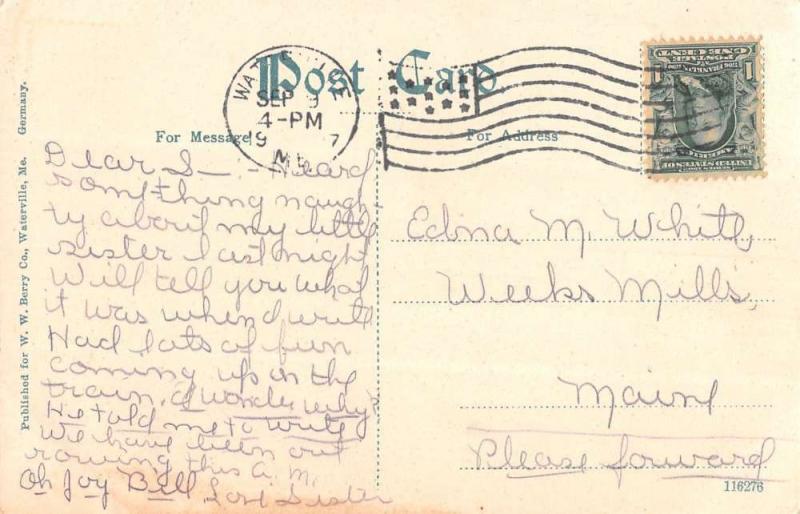 Post Card
WATERVILLE
SEP 9
4-PM
19 7
ME.
ONE CENT
1
For Message
For Address
Dear S— - Heard
something naugh-
ty about my little
sister last night
Will tell you what
it was when I write
Had lots of fun
coming up on the
train, I wonder why?
He told me to write
We have been out
rowing this A.M.
Oh Joy Bill, Love Sister
Edna M. White,
Weeks Mills,
Maine
Please forward
116276
Published for W. W. Berry Co., Waterville, Me. Germany.